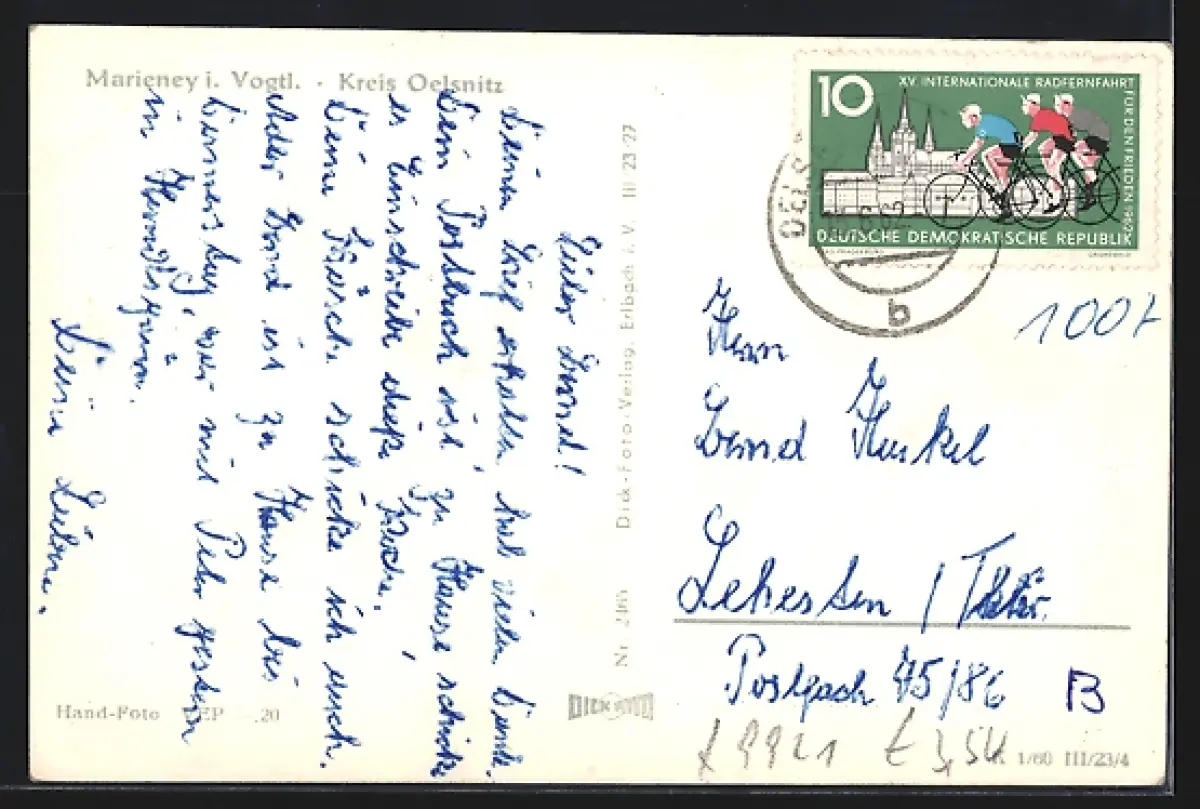 Marieney i. Vogtl. - Kreis Oelsnitz
Lieber Bernd!
Deinen Brief erhalten hab vielen Dank.
Dein Postbuch ist zu Hause schicke
es Einschreiben diese Woche,
Deine Wäsche schicke ich auch.
ist zu Hause bis
Donnerstag, war mit Peter gestern
in
Deine
Hand-Foto
20
Nr. 2465
Dick-Foto-Verlag, Erlbach i. V. III 23/27
DICK FOTO
10
XV. INTERNATIONALE RADFERNFAHRT
FÜR DEN FRIEDEN 1962
DEUTSCHE DEMOKRATISCHE REPUBLIK
OELS
b
100%
Herrn
Bernd Hankel
Lehesten / Thür.
Postfach 45/86
B
1/60 III/23/4